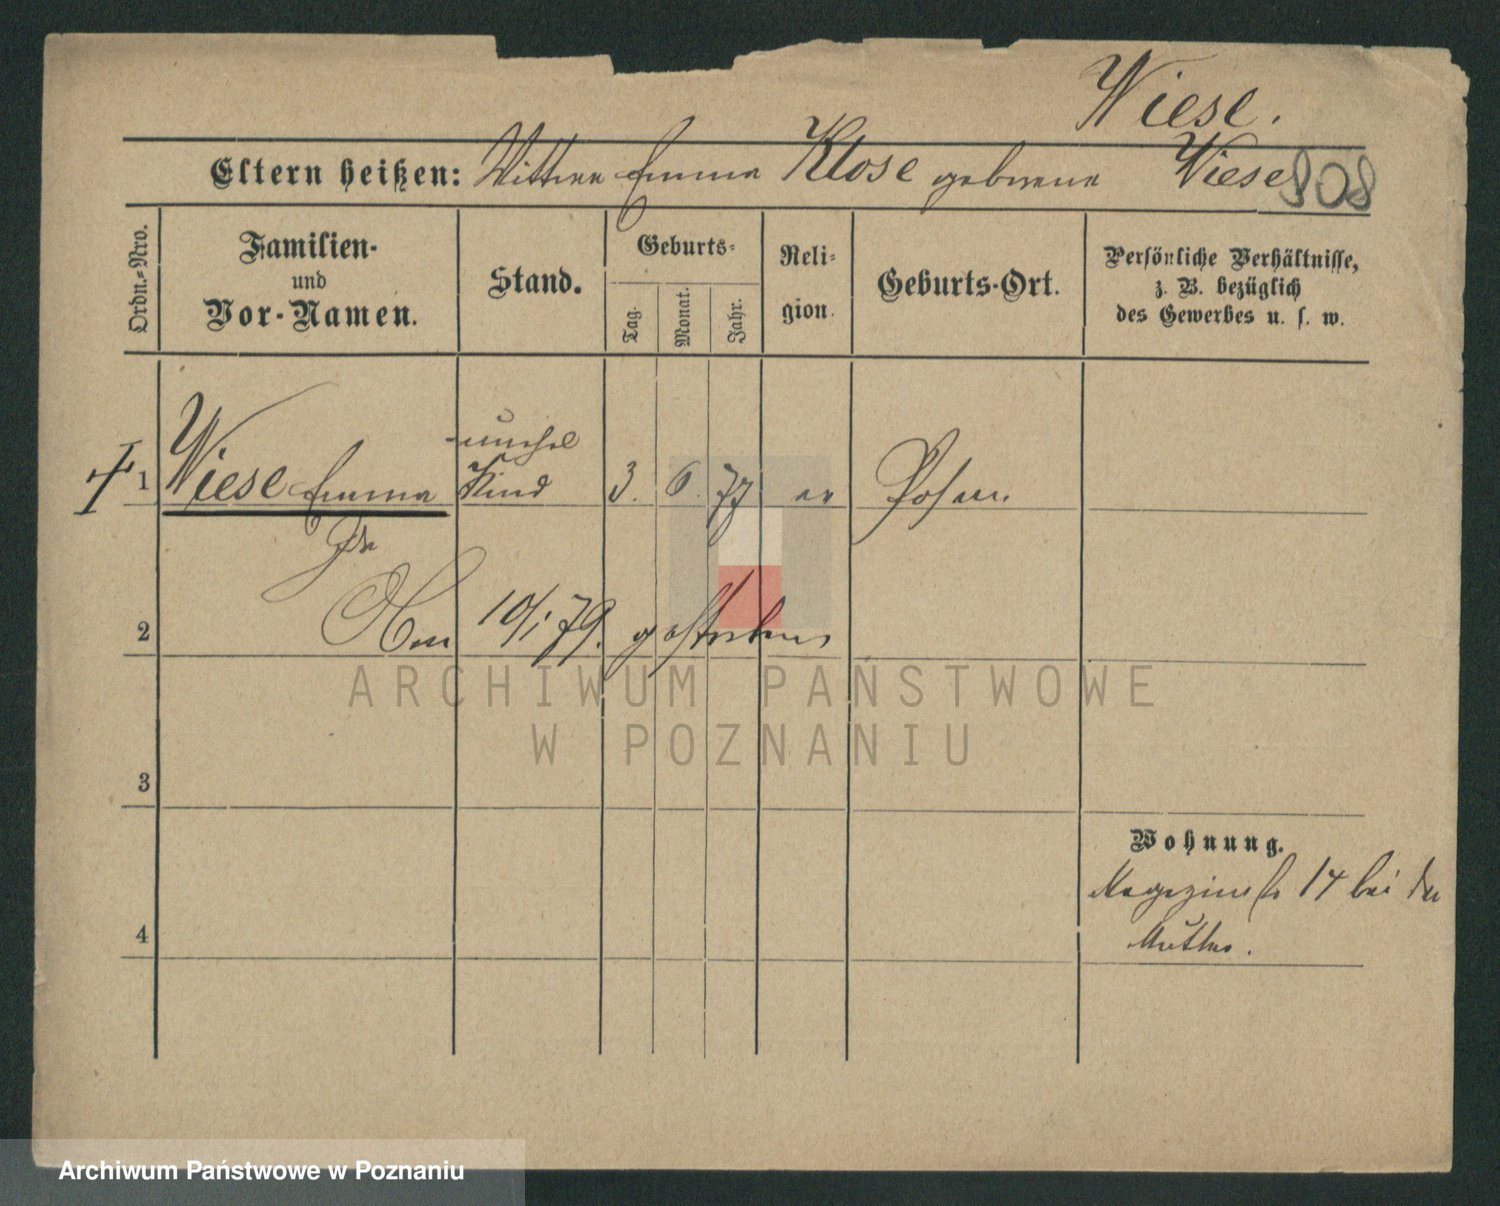 Wiese.
Eltern heißen: Wittwe Emma Klose geborene Wiese 808
Ordn.-Nro.
Familien- und Vor-Namen.
Stand.
Geburts-
Tag.
Monat.
Jahr.
Reli-
gion.
Geburts-Ort.
Persönliche Verhältnisse,
z. B. bezüglich
des Gewerbes u. s. w.
unehel
1 Wiese Emma Kind 3. 6. 77 ev Posen
2 10/1 79. gestorben
3
4
Wohnung.
Magazinstr 14 bei der
Mutter.
ARCHIWUM PAŃSTWOWE
W POZNANIU
Archiwum Państwowe w Poznaniu